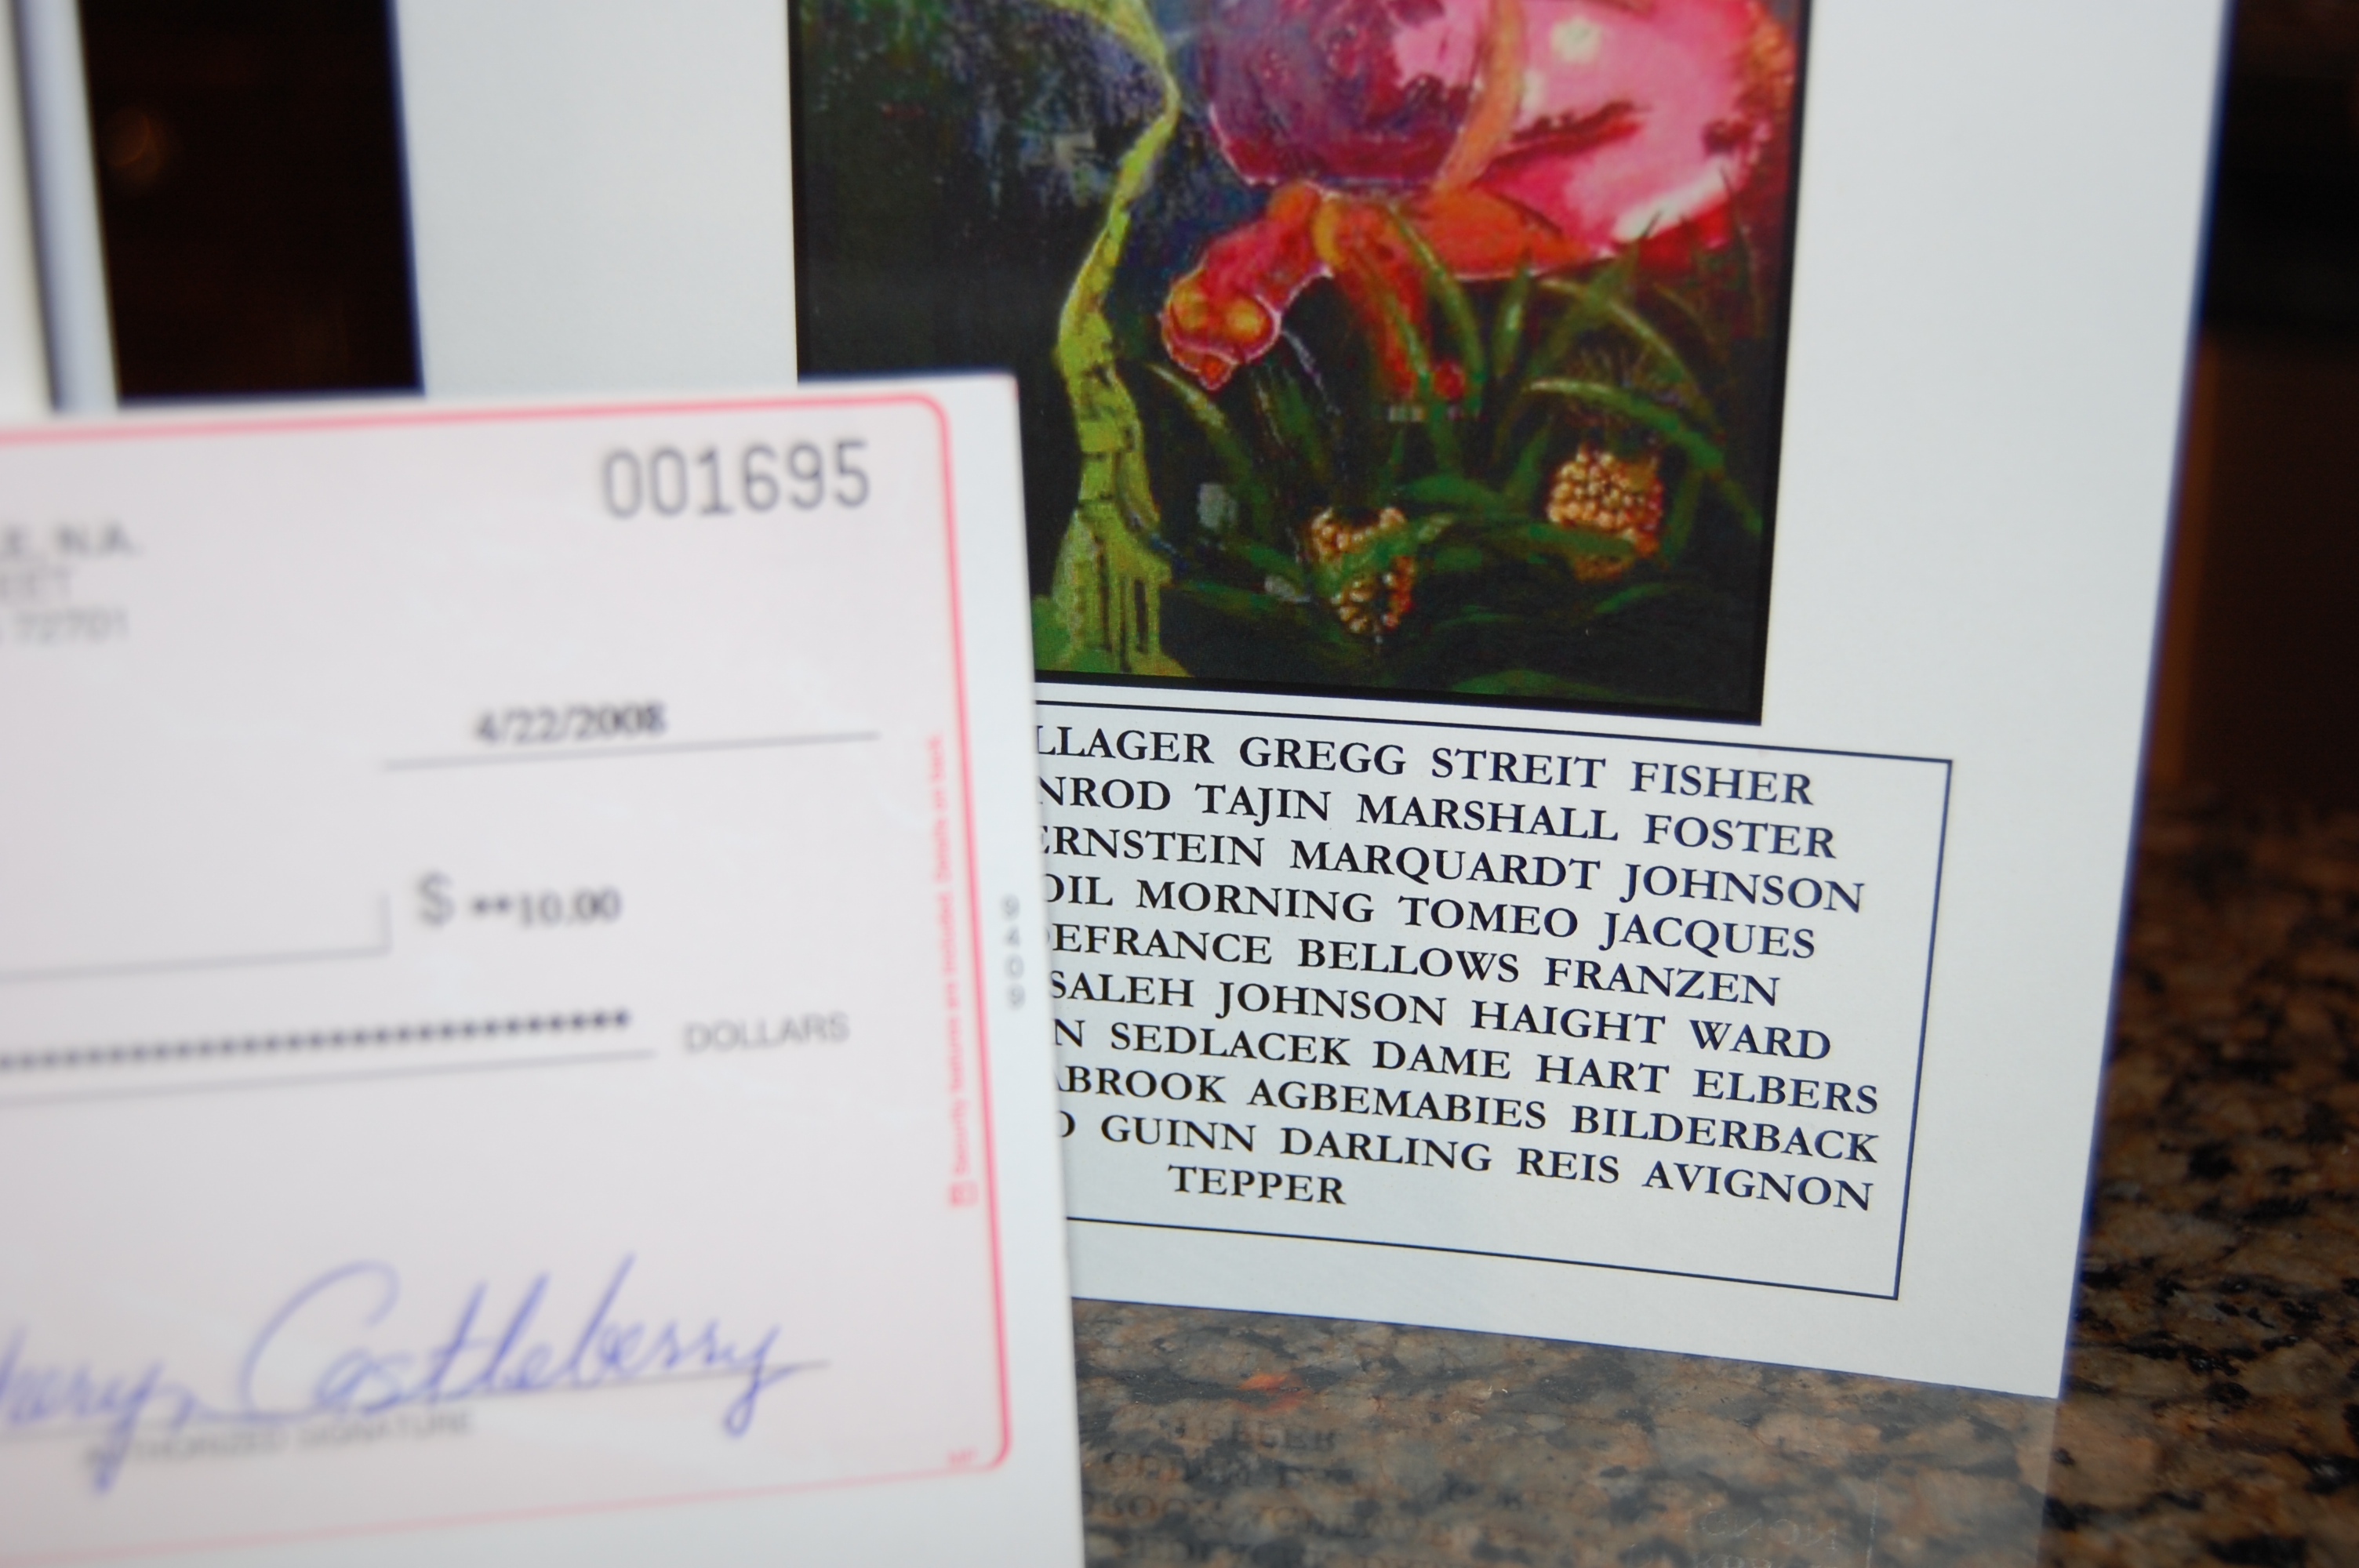 001695
N.A.
72701
4/22/2008
$ **10.00
DOLLARS
Security features are included. Details on back.
9409
Castleberry
AUTHORIZED SIGNATURE
LLAGER GREGG STREIT FISHER
NROD TAJIN MARSHALL FOSTER
ERNSTEIN MARQUARDT JOHNSON
OIL MORNING TOMEO JACQUES
DEFRANCE BELLOWS FRANZEN
SALEH JOHNSON HAIGHT WARD
N SEDLACEK DAME HART ELBERS
ABROOK AGBEMABIES BILDERBACK
D GUINN DARLING REIS AVIGNON
TEPPER